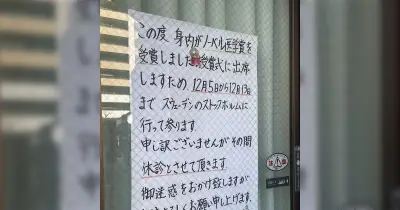 この度、身内がノーベル医学賞を
受賞しました。授賞式に出席
しますため、12月5日から12月13日
まで スウェーデンのストックホルムに
行って参ります。
申し訳ございませんがその間
休診とさせて頂きます。
御迷惑をおかけ致しますが
よろしくお願い申し上げます。